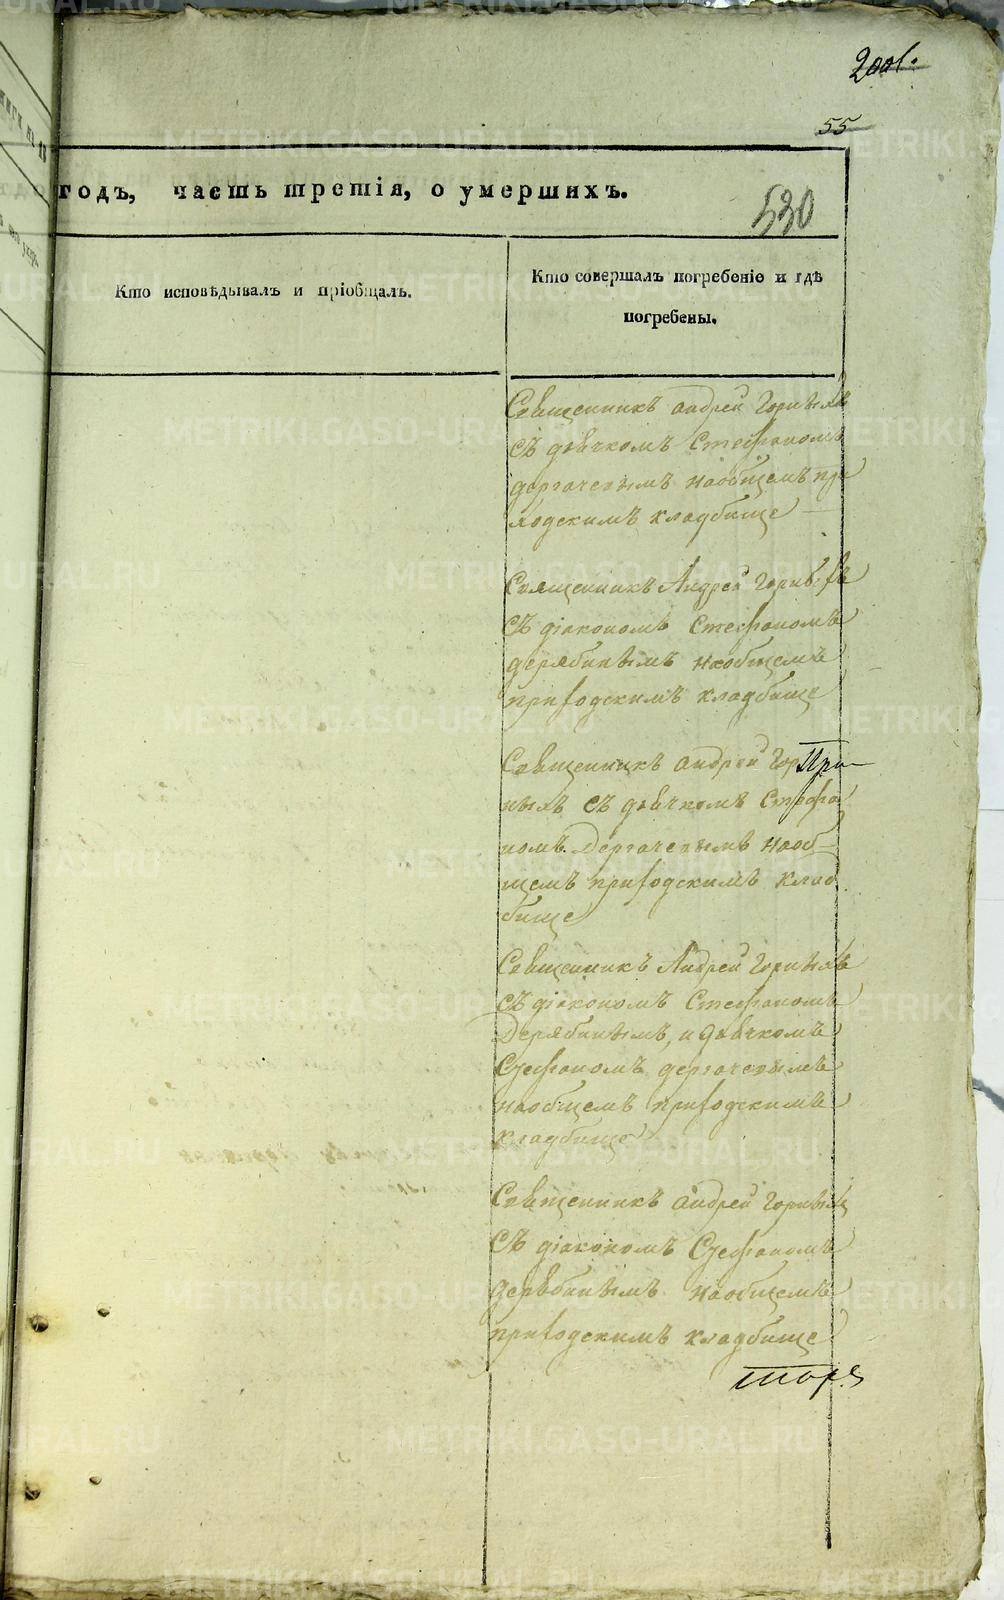 2001.
55
годъ, часть третія, о умершихъ.
530
Кто исповѣдывалъ и пріобщалъ.
Кто совершалъ погребеніе и гдѣ
погребены.
Священникъ андрей Горныхъ
съ дьячкомъ Стефаномъ
дергачевымъ наобщемъ при
ходскимъ кладбище
Священникъ Андрей Горныхъ
съ діакономъ Стефаномъ
дерябинымъ наобщемъ
приходскимъ кладбище
Священникъ андрей Гор
При
ныхъ съ дьячкомъ Стефа
номъ Дергачевымъ наоб
щемъ приходскимъ клад
бище
Священникъ Андрей Горныхъ
съ діакономъ Стефаномъ
Дерябинымъ, и дьячкомъ
Стефаномъ дергачевымъ
наобщемъ приходскимъ
кладбище
Священникъ андрей Горныхъ
съ діакономъ Стефаномъ
дерябинымъ наобщемъ
приходскимъ кладбище
METRIKI.GASO-URAL.RU